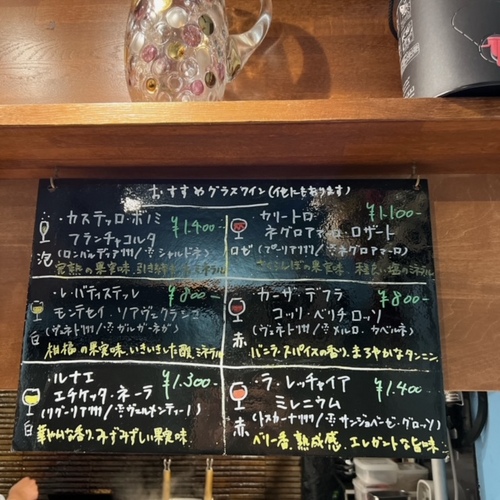 おすすめグラスワイン(他にもあります)
・カステッロ・ボノミ
フランチャコルタ
¥1.400-
泡
(ロンバルディア州/※シャルドネ)
完熟の果実味、引き締まったミネラル
・カリートロ
ネグロアマーロ・ロザート
¥1.100-
ロゼ
(プーリア州/※ネグロアマーロ)
さくらんぼの果実味
・レ・バティステッレ
¥800-
モンテセイ・ソアヴェクラシコ
白
(ヴェネト州/※ガルガーネガ)
柑橘の果実味、いきいきした酸、ミネラル
・カーサ・デフラ
¥800-
コッリ・ベリチロッソ
赤
(ヴェネト州/※メルロ、カベルネ)
バニラ、スパイスの香り、まろやかなタンニン、
・ルナエ
¥1.300-
エチケッタ・ネーラ
白
(リグーリア州/※ヴェルメンティーノ)
華やかな香り、みずみずしい果実味、
・ラ・レッチャイア
¥1.400
ミレニウム
赤
(トスカーナ州/※サンジョベーゼ・グロッソ)
ベリー香、熟成感、エレガントな旨味